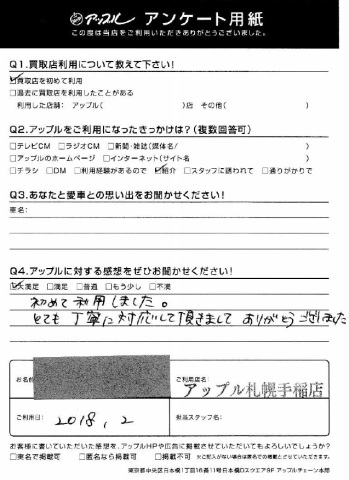 アップル アンケート用紙
この度は当店をご利用いただきありがとうございました。
Q1.買取店利用について教えて下さい!
☑買取店を初めて利用
□過去に買取店を利用したことがある
利用した店舗: アップル( )店 その他( )
Q2.アップルをご利用になったきっかけは?(複数回答可)
□テレビCM □ラジオCM □新聞・雑誌(媒体名/ )
□アップルのホームページ □インターネット(サイト名 )
□チラシ □DM □利用経験があるので ☑紹介 □スタッフに誘われて □通りがかりで
Q3.あなたと愛車との思い出をお聞かせください!
車名:
Q4.アップルに対する感想をぜひお聞かせください!
☑大満足 □満足 □普通 □もう少し □不満
初めて利用しました。
とても丁寧に対応して頂きまして ありがとうございました
お名前
ご利用店名:
アップル札幌手稲店
ご利用日: 2018, 2
担当スタッフ名:
お客様に書いていただいた感想を、アップルHPや広告に掲載させていただいてもよろしいでしょうか?
□実名で掲載可 □匿名なら掲載可 □掲載不可 ※ご記入がない場合は匿名での掲載とさせていただきます。
東京都中央区日本橋1丁目16番11号日本橋Dスクエア9F アップルチェーン本部